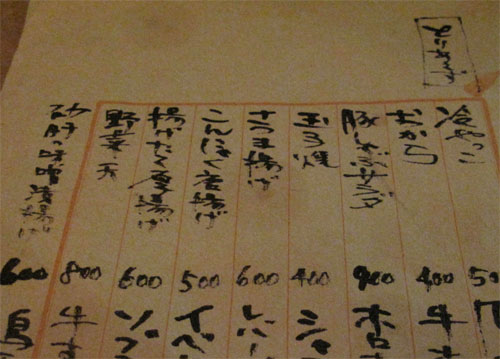 おつまみ
冷やっこ 50
おから 400
豚しゃぶサラダ 900
玉子焼 400
さつま揚げ 600
こんにゃく唐揚げ 500
揚げたて厚揚げ 600
野菜天 800
砂肝の味噌漬揚げ 600
牛す
ホロ
シャ
レバー
イベ
ソフ
牛す
鳥